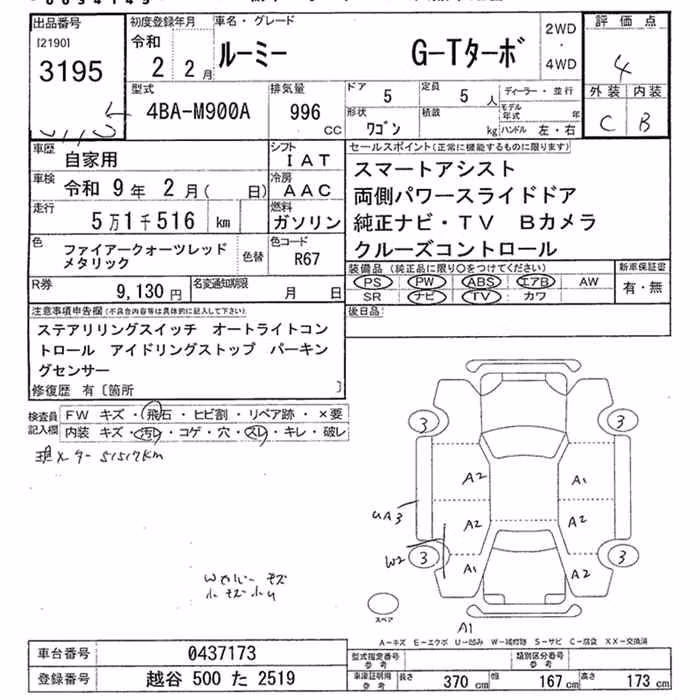 出品番号
[2190]
3195
初度登録年月
令和
2 2月
車名・グレード
ルーミー G-Tターボ
2WD
・
4WD
評価点
4
外装 内装
C B
型式
4BA-M900A
排気量
996
CC
ドア
5
定員
5 人
ディーラー・並行
形状
ワゴン
積載
kg
モデル
年式 年
ハンドル 左・右
車歴
自家用
シフト
IAT
車検
令和 9年 2月( 日)
冷房
AAC
走行
5万1千516 km
燃料
ガソリン
色
ファイアークォーツレッド
メタリック
色替
色コード
R67
R券
9,130 円
名変通知期限
月 日
セールスポイント(正常に機能するものに限ります)
スマートアシスト
両側パワースライドドア
純正ナビ・TV Bカメラ
クルーズコントロール
装備品 (純正品に限り○をつけてください)
PS PW ABS エアB AW
SR ナビ TV カワ
新車保証書
有・無
後日品:
注意事項申告欄(不具合内容等は具体的に記入して下さい)
ステアリリングスイッチ オートライトコン
トロール アイドリングストップ パーキン
グセンサー
修復歴 有〔箇所 〕
検査員
記入欄
FW キズ・飛石・ヒビ割・リペア跡・×要
内装 キズ・汚れ・コゲ・穴・スレ・キレ・破レ
現メター 51517km
3 3
A2 A1
UA3
A2 A2
W2
3 3
A1 A2
スペア
A1
A-キズ E-エクボ U-凹み W-補修跡 S-サビ C-腐食 XX-交換済
車台番号
0437173
登録番号
越谷 500 た 2519
型式指定番号
参考
類別区分番号
参考
車庫証明用
参考
長さ 370 cm
幅 167 cm
高さ 173 cm